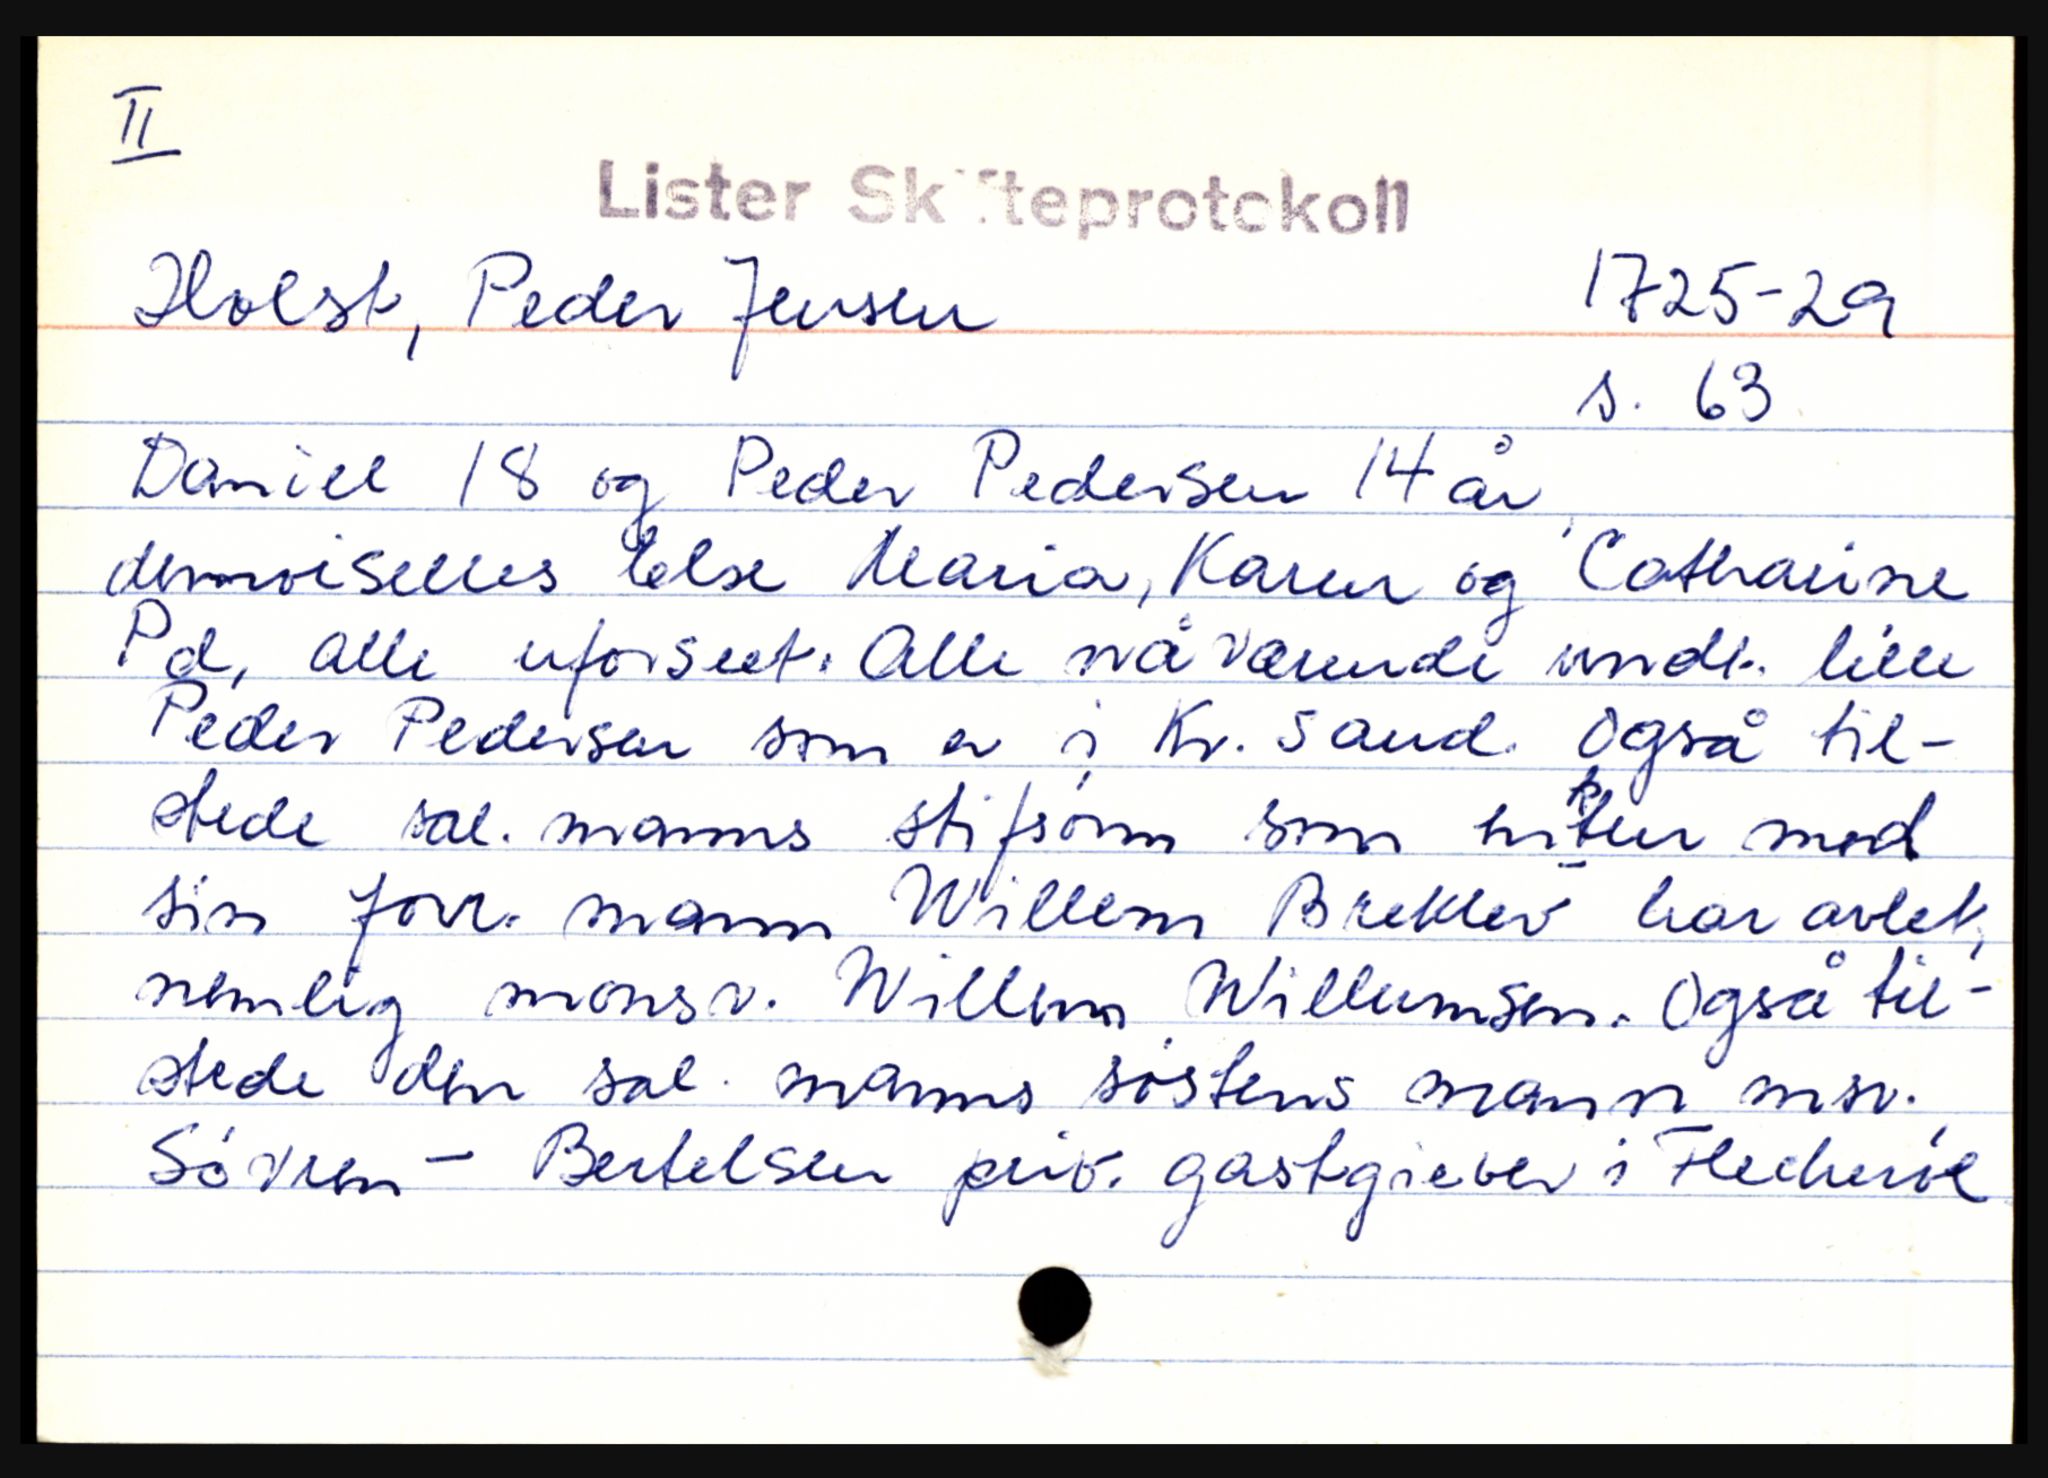 II
Lister Skifteprotokoll
Holst, Peder Jensen 1725-29
s. 63
Daniel 18 og Peder Pedersen 14 år,
demoiselles Else Maria, Karen og Catharine
Pd, alle uforseet. Alle nåværende undt. lille
Peder Pedersen som er i Kr.sand. Også til-
stede sal. manns stifsønn som enken med
sin forr. mann Willem Brekler har avlet,
nemlig monsr. Willem Willumsen. Også til-
stede den sal. manns søsters mann msr.
Søvren - Bertelsen priv. gastgieber i Flecherøe